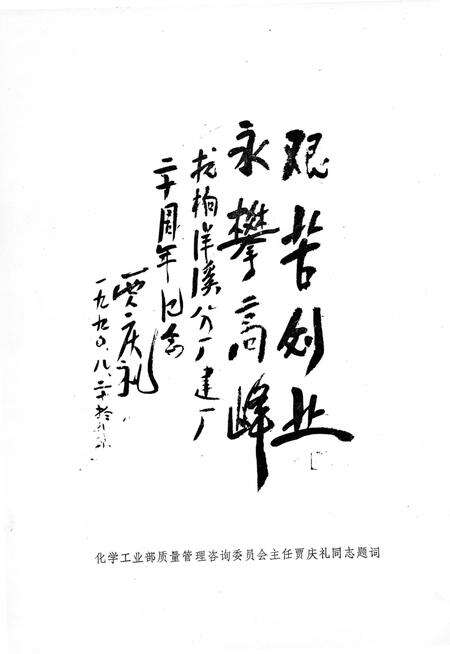 艰苦创业
永攀高峰
找柏洋溪分厂建厂
二十周年纪念
贾庆礼
一九九〇.八.二十
化学工业部质量管理咨询委员会主任贾庆礼同志题词